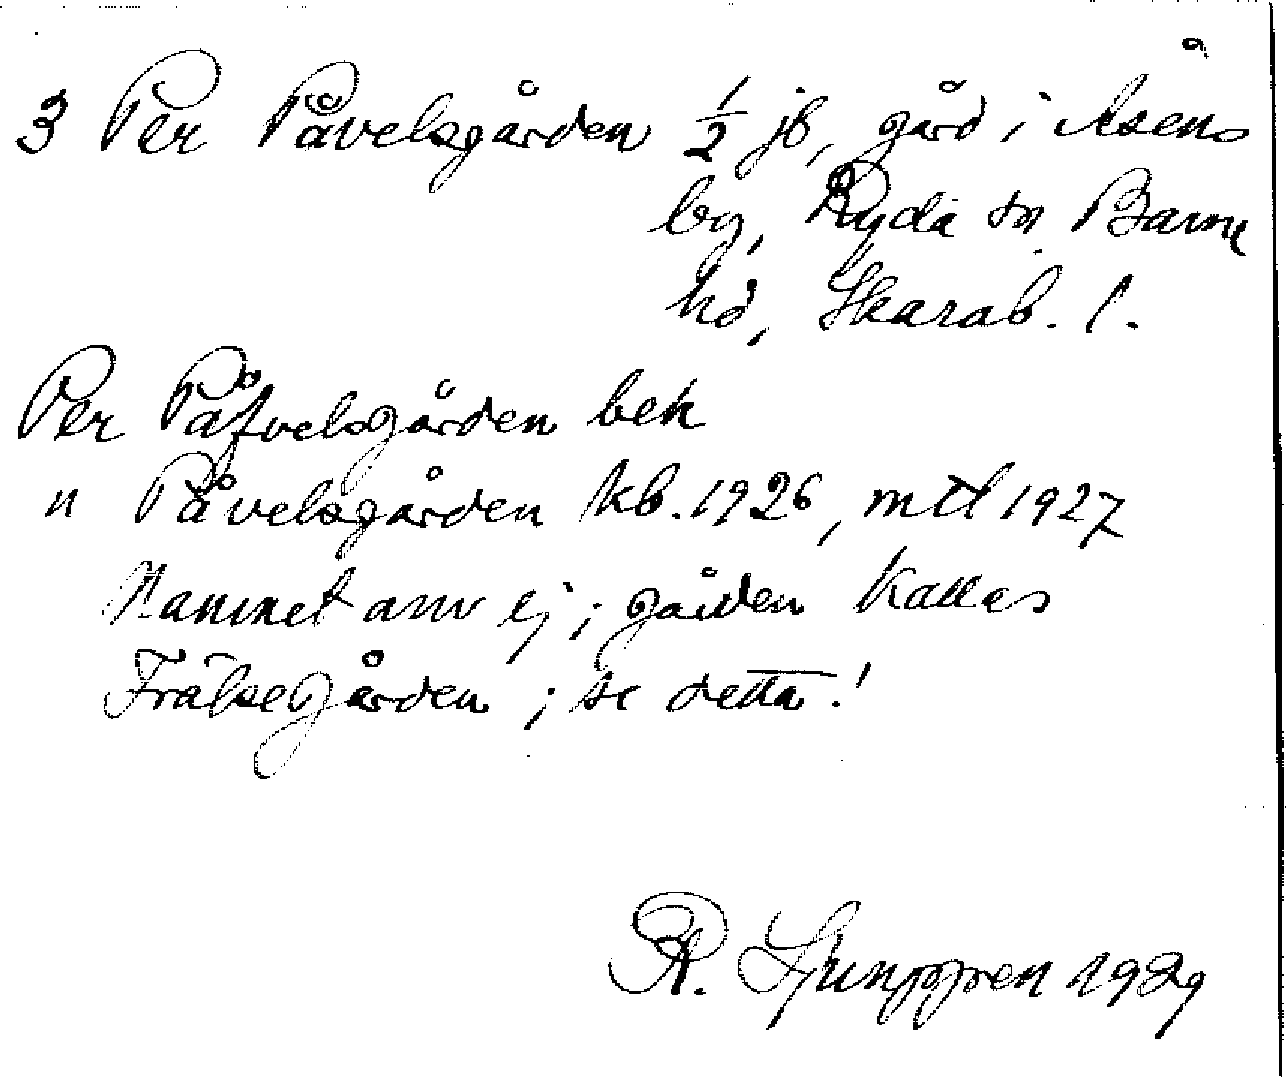 3 Per Påvelsgården 1/2 jb, gård i Åsens
by, Ryda sn Barne
hd, Skarab. l.
Per Påfvelsgården bek
" Påvelsgården kb. 1926, mtl 1927
Namnet anv ej; gården kallas
Frälsegården; se detta!
R. Ljunggren 1929